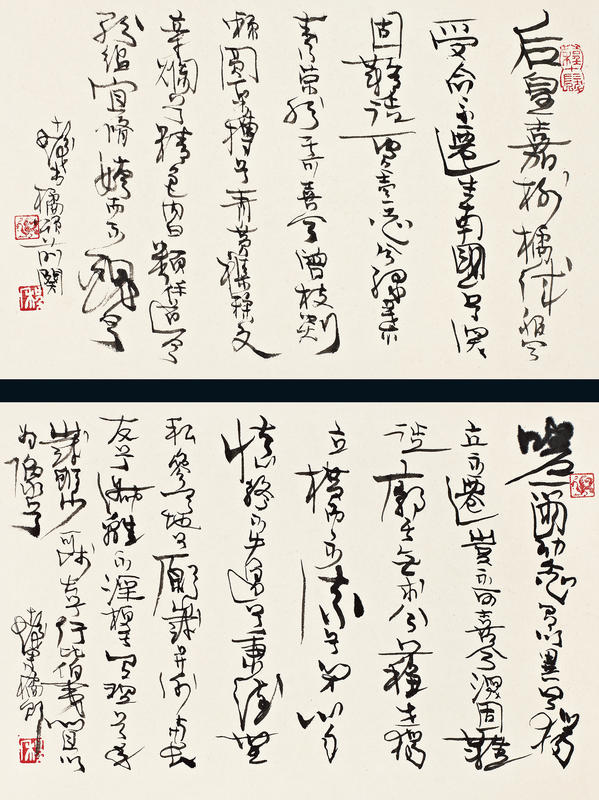 后皇嘉樹橘徠服兮
受命不遷生南國兮深
固難徙更壹志兮綠葉
素榮紛其可喜兮曾枝剡
棘圓果摶兮青黃雜糅文
章爛兮精色內白類任道兮
紛縕宜脩姱而不醜兮
書橘頌前闋
嗟爾幼志有以異兮獨
立不遷豈不可喜兮深固難
徙廓其無求兮蘇世獨
立橫而不流兮閉心自
慎終不失過兮秉德無
私參天地兮願歲并謝與長
友兮淑離不淫梗其有理兮年
歲雖少可師長兮行比伯夷置以
為像兮